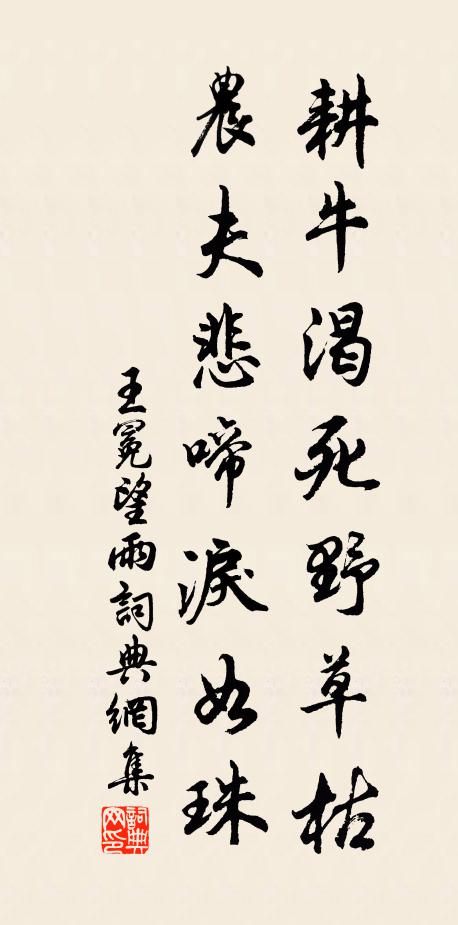 耕牛渴死野草枯
農夫悲啼淚如珠
王冕望雨詞典網集
詞典網印